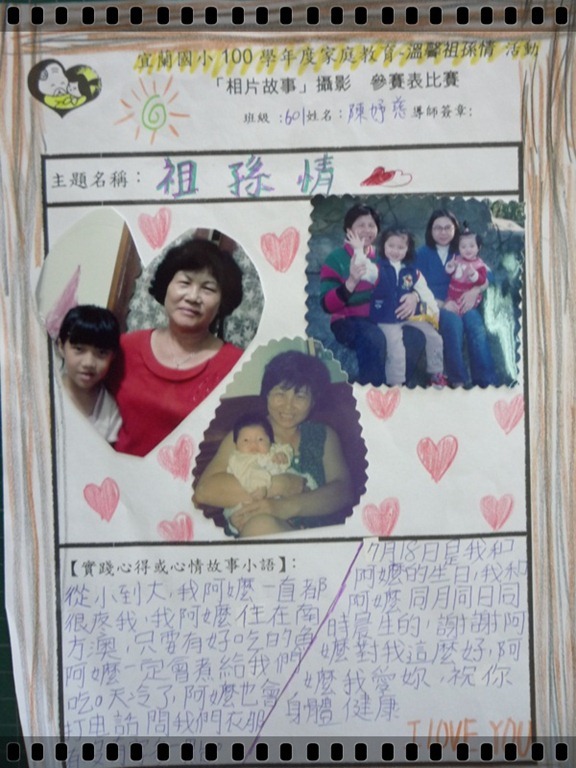 宜蘭國小100學年度家庭教育-溫馨祖孫情 活動
「相片故事」攝影 參賽表比賽
班級:601姓名:陳妤慈 導師簽章:
主題名稱: 祖孫情
【實踐心得或心情故事小語】:
從小到大,我阿嬤一直都
很疼我,我阿嬤住在南
方澳,只要有好吃的魚
阿嬤一定會煮給我們
吃。天冷了,阿嬤也會
打电話問我們衣服
7月18日是我和
阿嬤的生日,我和
阿嬤同月同日同
時辰生的,謝謝阿
嬤對我這麼好,阿
嬤我愛妳,祝你
身體健康
I LOVE YOU